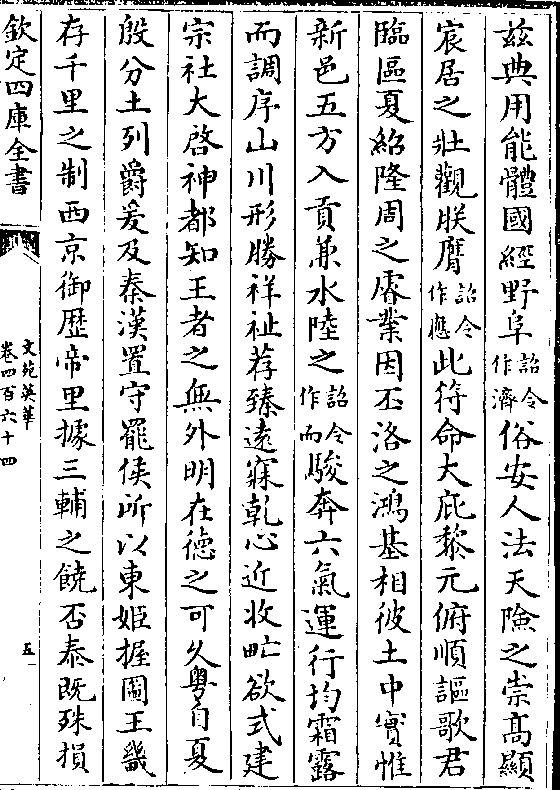 茲典用能體國經野阜詔令作濟俗安人法天險之崇髙顯
宸居之壯觀朕膺詔令作應此符命大庇黎元俯順謳歌君
臨區夏紹隆周之睿業因丕洛之鴻基相彼土中實惟
新邑五方入貢兼水陸之詔令作而駿奔六氣運行均霜露
而調序山川形勝祥祉荐臻遠寐乾心近收甿欲式建
宗社大啓神都知王者之無外明在徳之可久粤自夏
殷分土列爵爰及秦漢置守罷侯所以東姬握圖王畿
存千里之制西京御歴帝里據三輔之饒否泰既殊損
欽定四庫全書
文苑英華
卷四百六十四
五